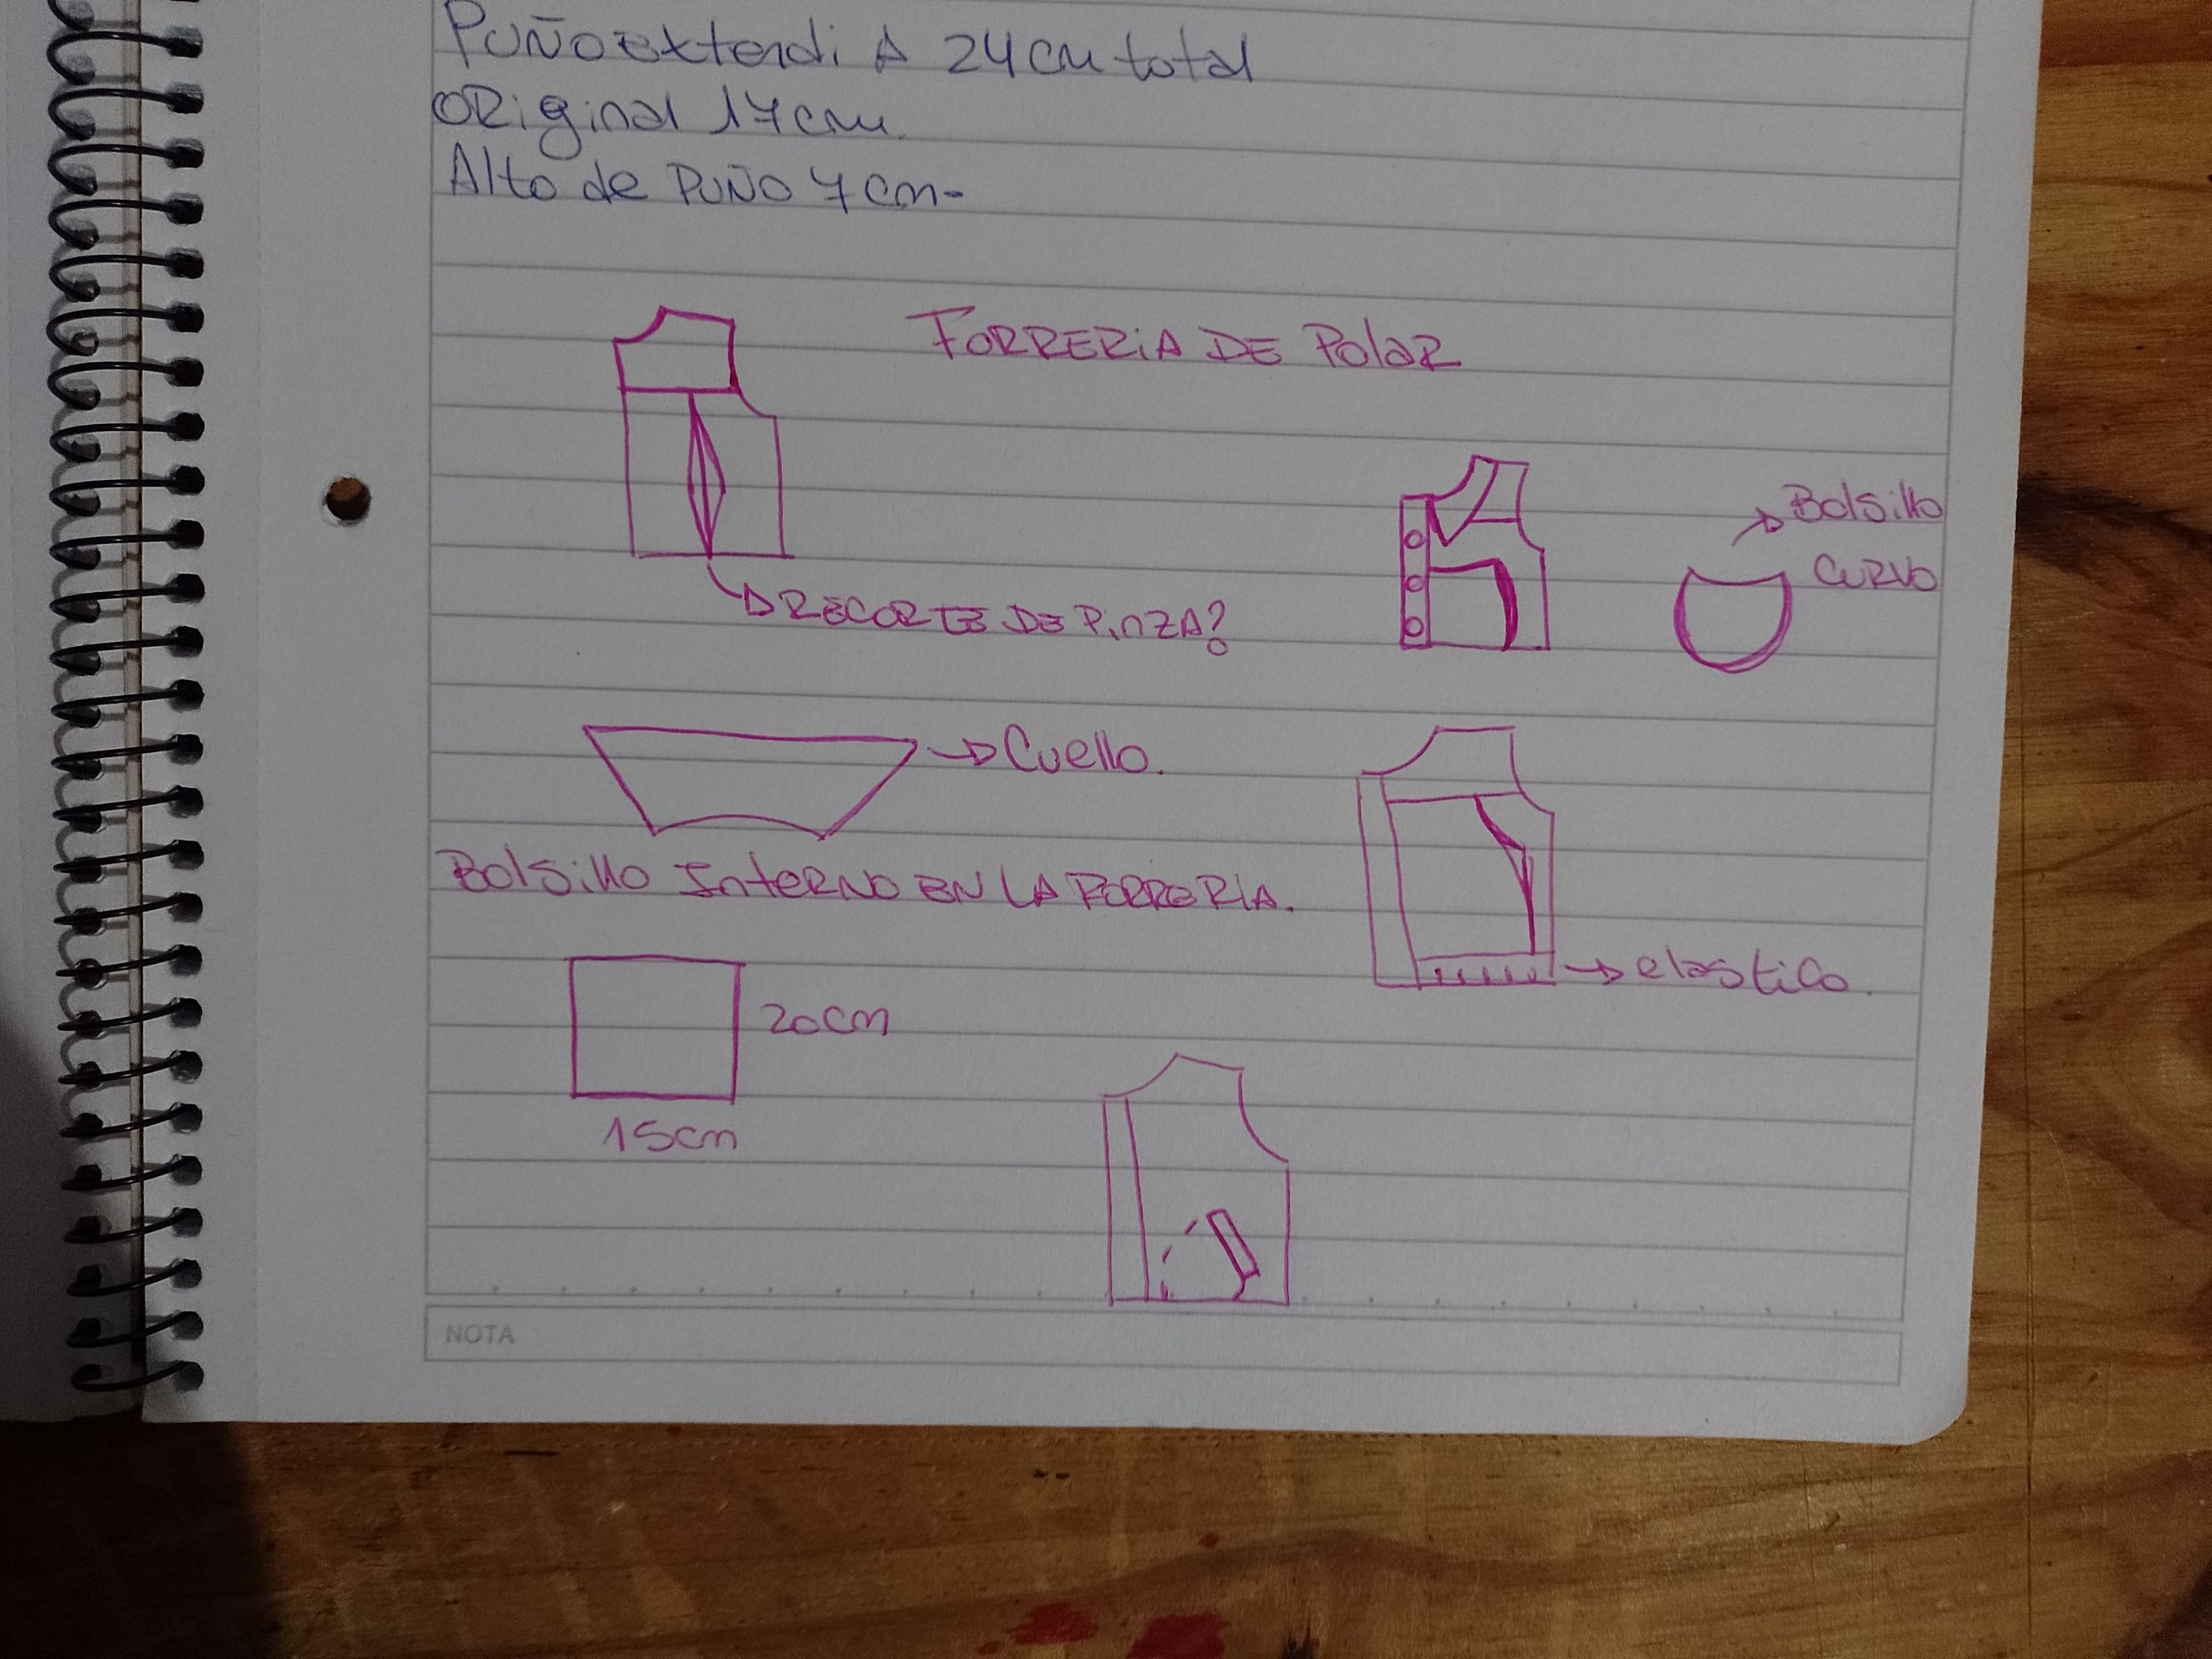 PUÑO extendi A 24cm total
ORiginal 17cm.
Alto de PUÑO 7cm-
FORRERIA DE POlaR
Bolsillo
CURVO
RECORTE DE PinZA?
Cuello.
Bolsillo InteRNO EN LA FORRERIA.
elastico.
20cm
15cm
NOTA